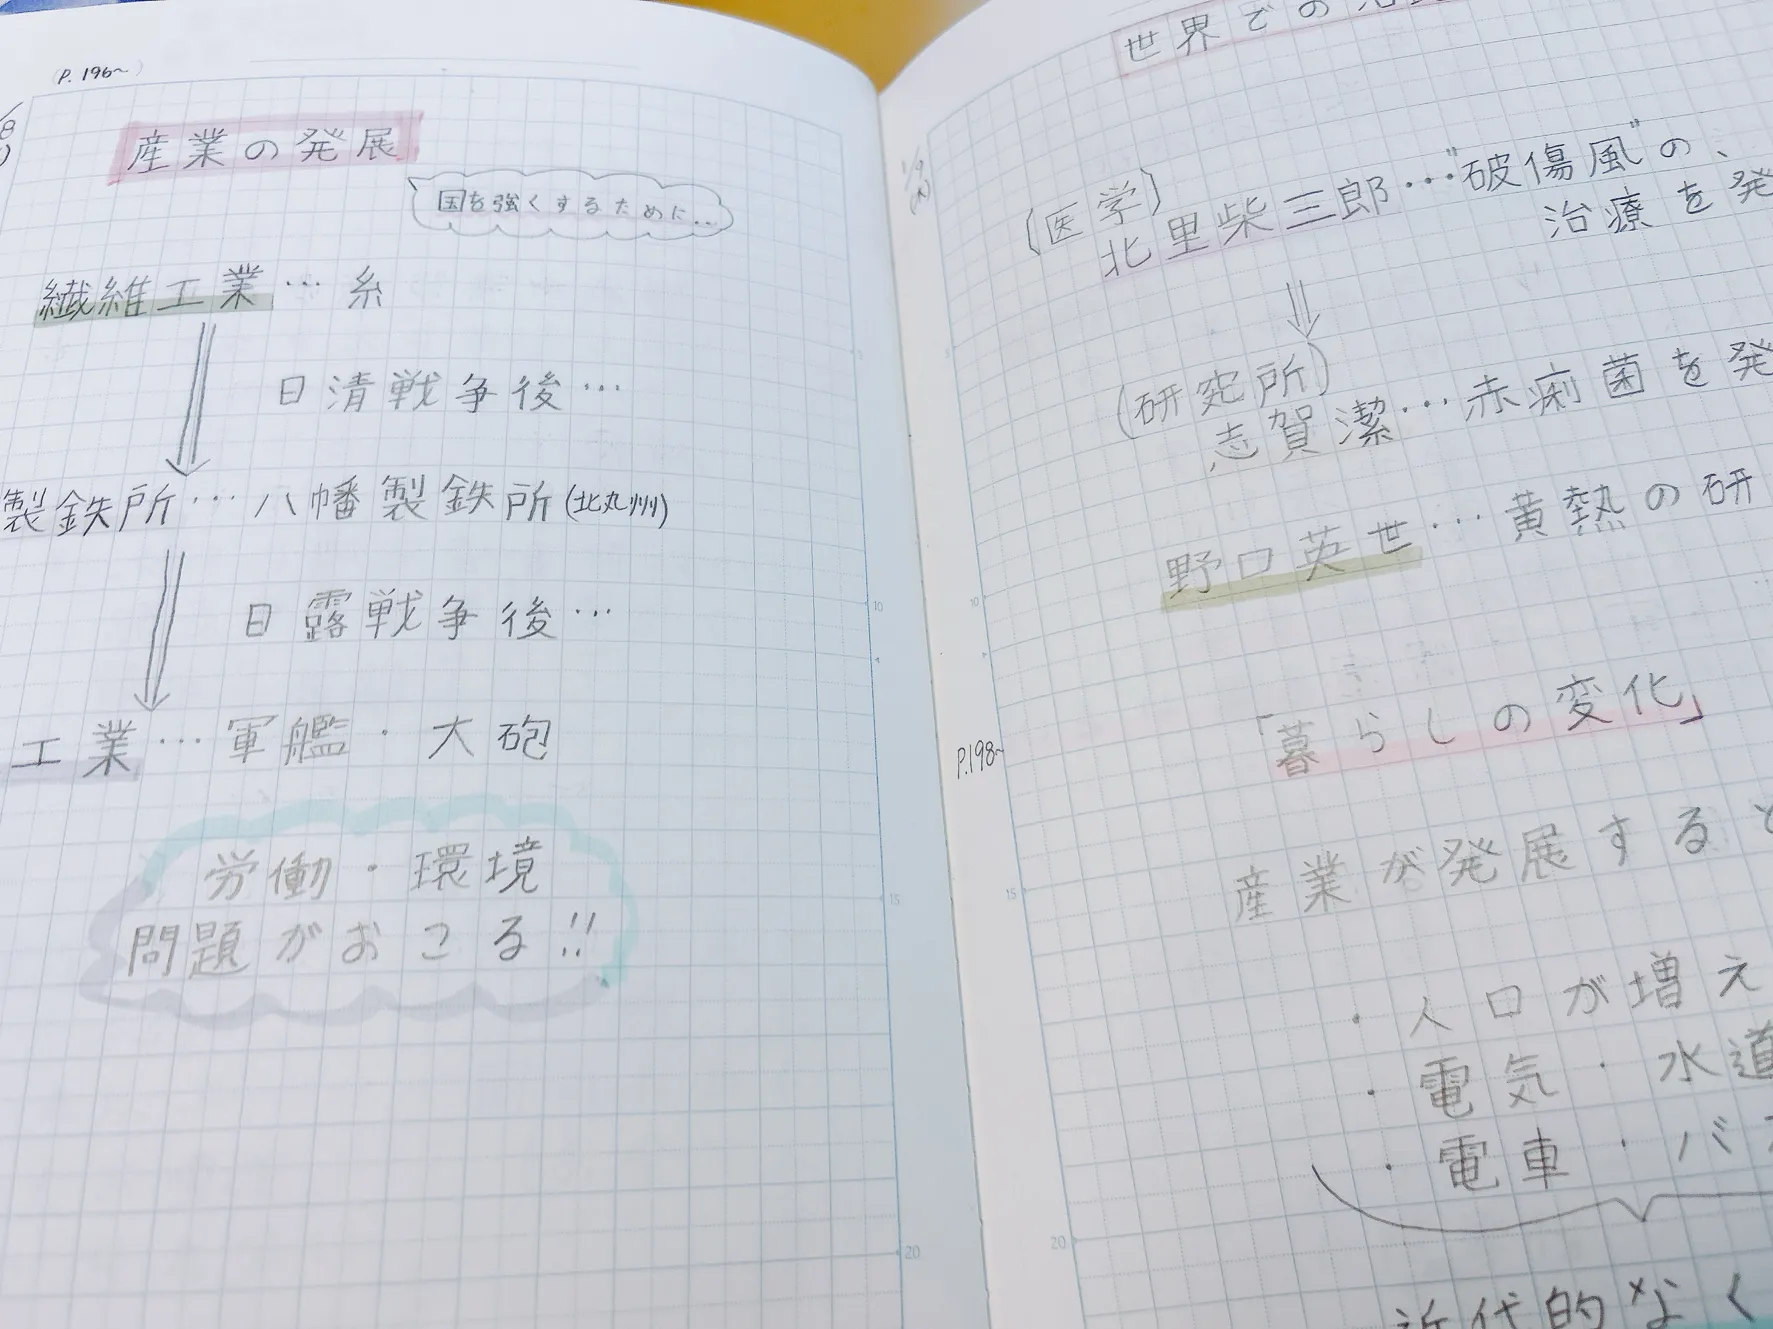 (P.196~)
産業の発展
国を強くするために…
繊維工業…糸
日清戦争後…
製鉄所…八幡製鉄所(北九州)
日露戦争後…
工業…軍艦・大砲
労働・環境
問題がおこる!!
世界での
(医学)
北里柴三郎…"破傷風"の、
治療を発
(研究所)
志賀潔…赤痢菌を発
野口英世…黄熱の研
「暮らしの変化」
P.198~
産業が発展すると
・人口が増え
・電気・水道
・電車・バス
近代的なく
10
15
20
5
10
15
20